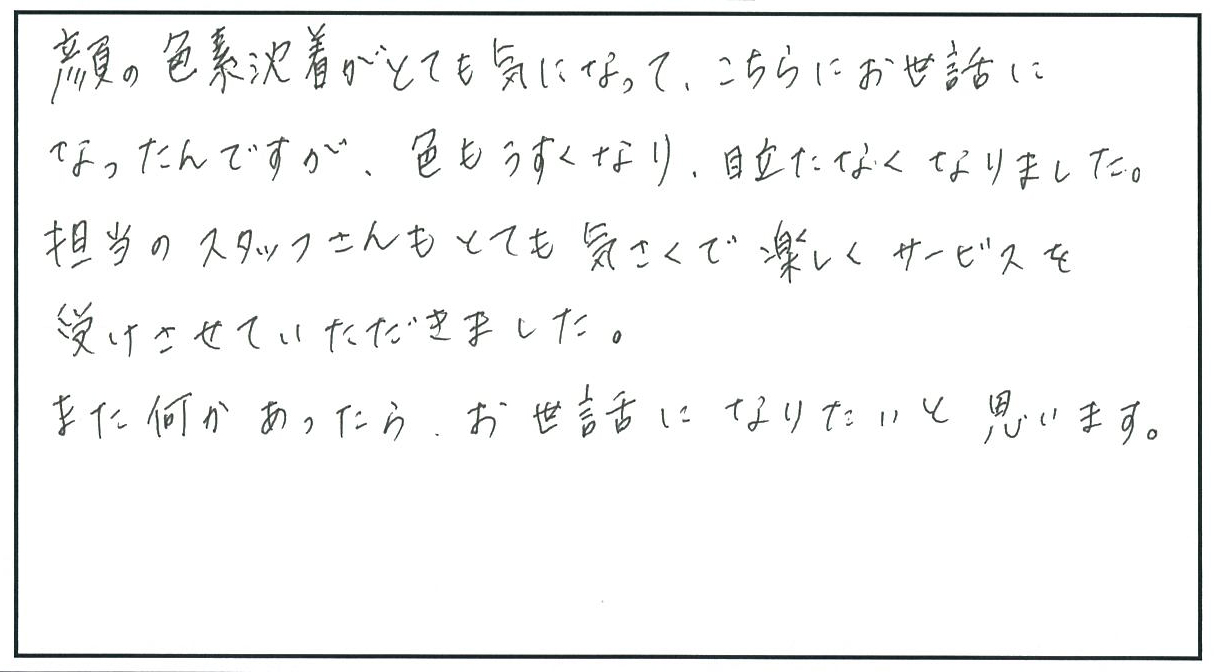 顔の色素沈着がとても気になって、こちらにお世話に
なったんですが、色もうすくなり、目立たなくなりました。
担当のスタッフさんもとても気さくで楽しくサービスを
受けさせていただきました。
また何かあったら、お世話になりたいと思います。